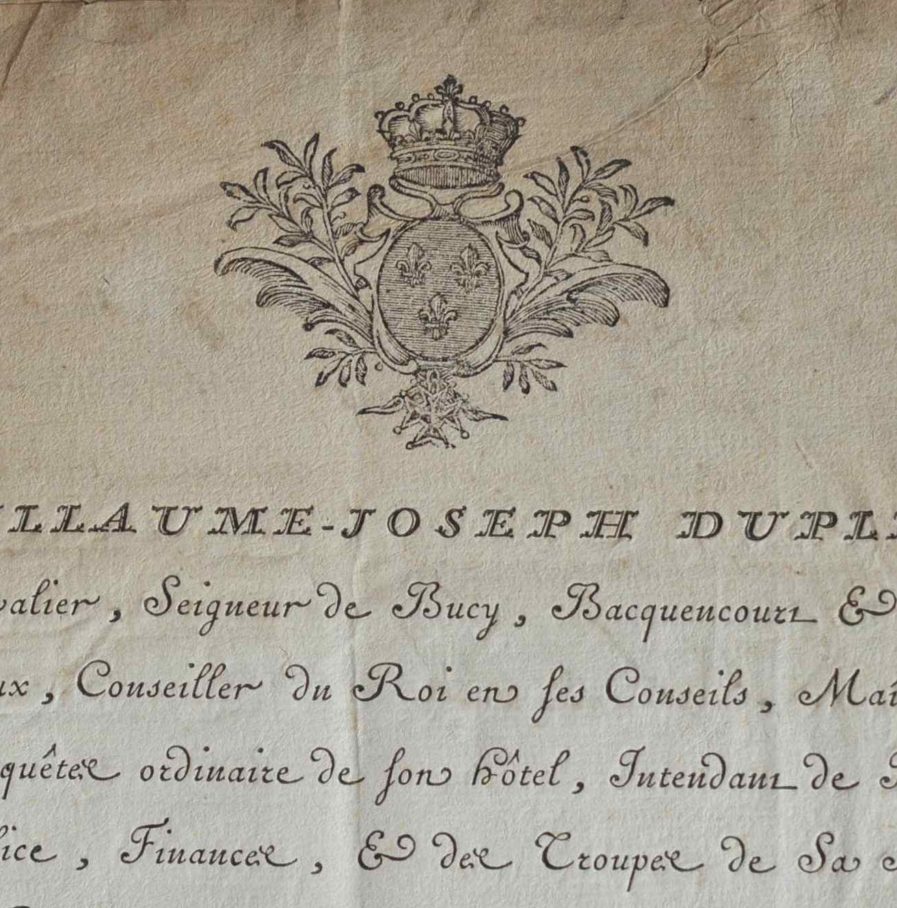 ILLAUME-JOSEPH DUPLE
valier, Seigneur de Bucy, Bacquencourt &
ux, Conseiller du Roi en ses Conseils, Maî
quêtes ordinaire de son hôtel, Intendant de
ice, Finances, & des Troupes de Sa